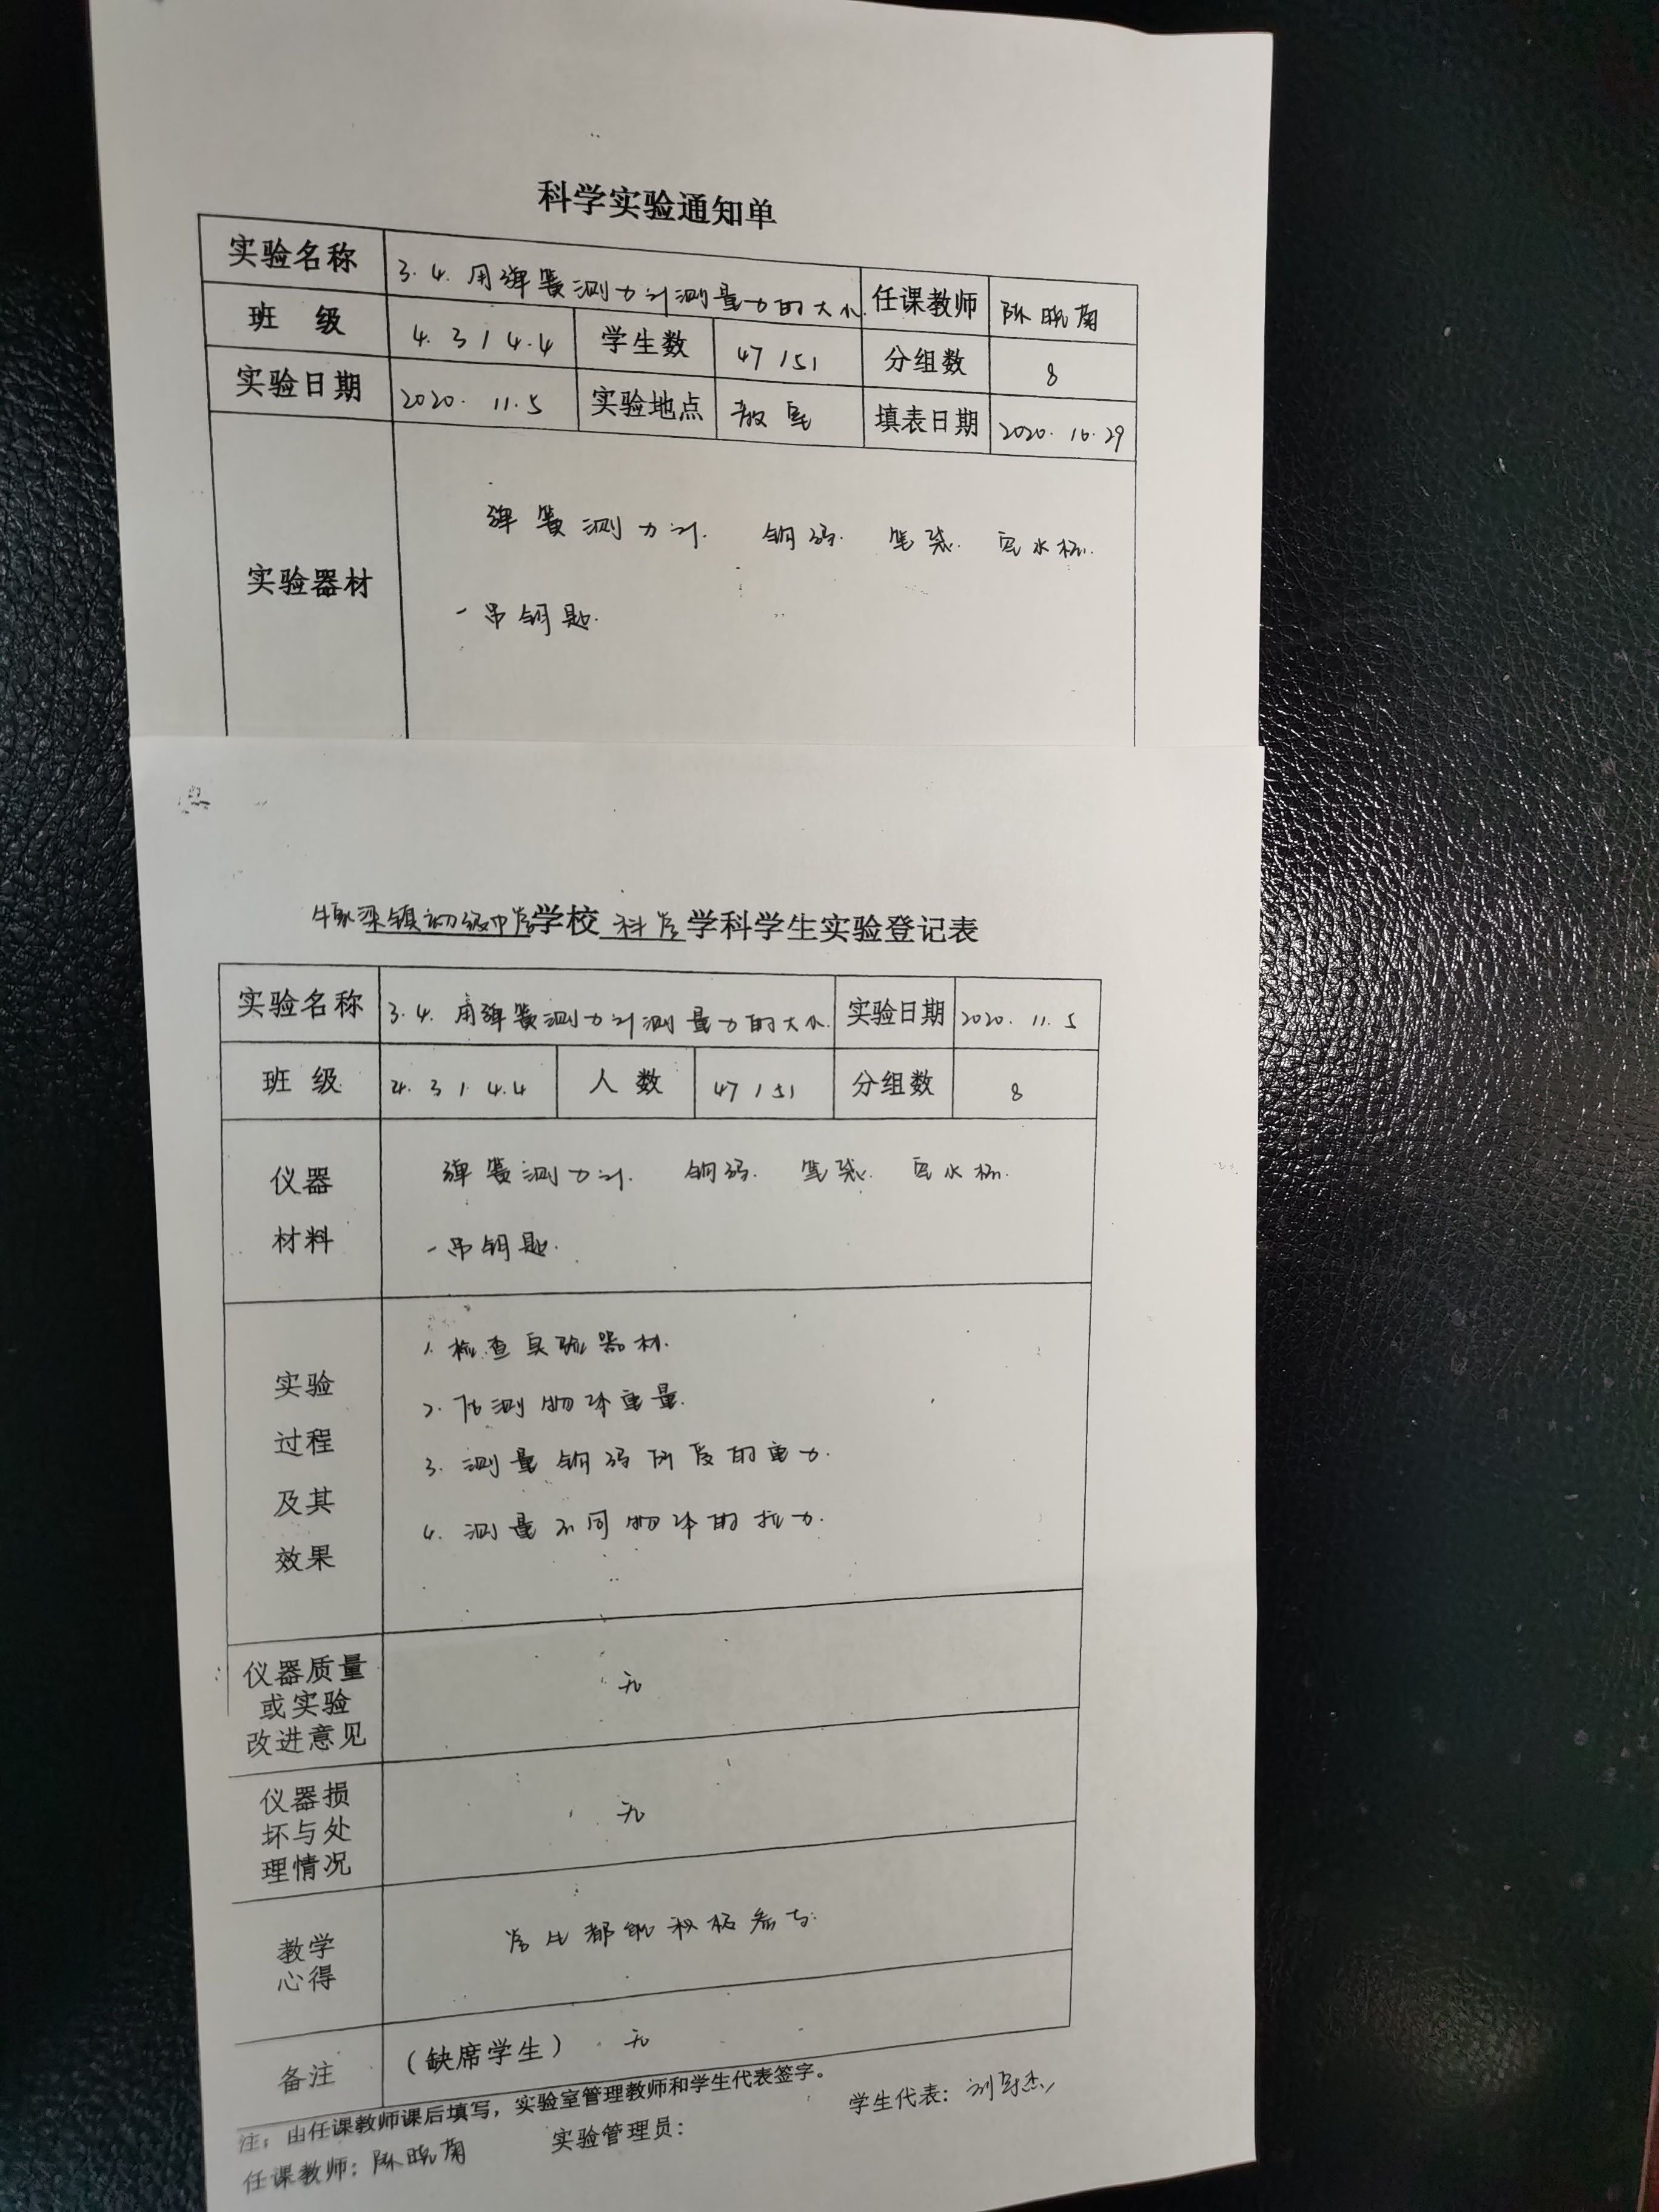 科学实验通知单
实验名称 3.4.用弹簧测力计测量力的大小. 任课教师 陈晓菊
班 级 4.3/4.4 学生数 47/51 分组数 8
实验日期 2020.11.5 实验地点 教室 填表日期 2020.10.29
实验器材 弹簧测力计. 钩码. 笔袋. 空水杯.
一串钥匙.
牛家梁镇初级中学学校 科学 学科学生实验登记表
实验名称 3.4.用弹簧测力计测量力的大小. 实验日期 2020.11.5
班 级 4.3/4.4 人 数 47/51 分组数 8
仪器 弹簧测力计. 钩码. 笔袋. 空水杯.
材料 一串钥匙.
1.检查实验器材.
实验 2.估测物体重量.
过程 3.测量钩码所受的重力.
及其 4.测量不同物体的拉力.
效果
仪器质量
或实验 无
改进意见
仪器损
坏与处 无
理情况
教学 学生都能积极参与.
心得
备注 (缺席学生) 无
注:由任课教师课后填写,实验室管理教师和学生代表签字。
任课教师: 陈晓菊 实验管理员: 学生代表: 刘